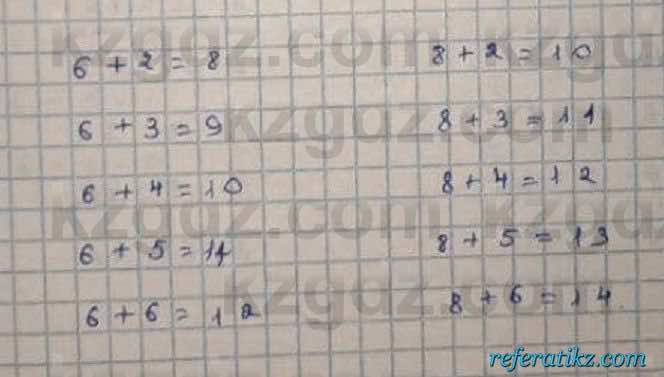 6 + 2 = 8
6 + 3 = 9
6 + 4 = 10
6 + 5 = 11
6 + 6 = 12
8 + 2 = 10
8 + 3 = 11
8 + 4 = 12
8 + 5 = 13
8 + 6 = 14
kzgdz.com kzgdz
kzgdz.com
kzgdz.com kzgdz
kzgdz.com
referatikz.com